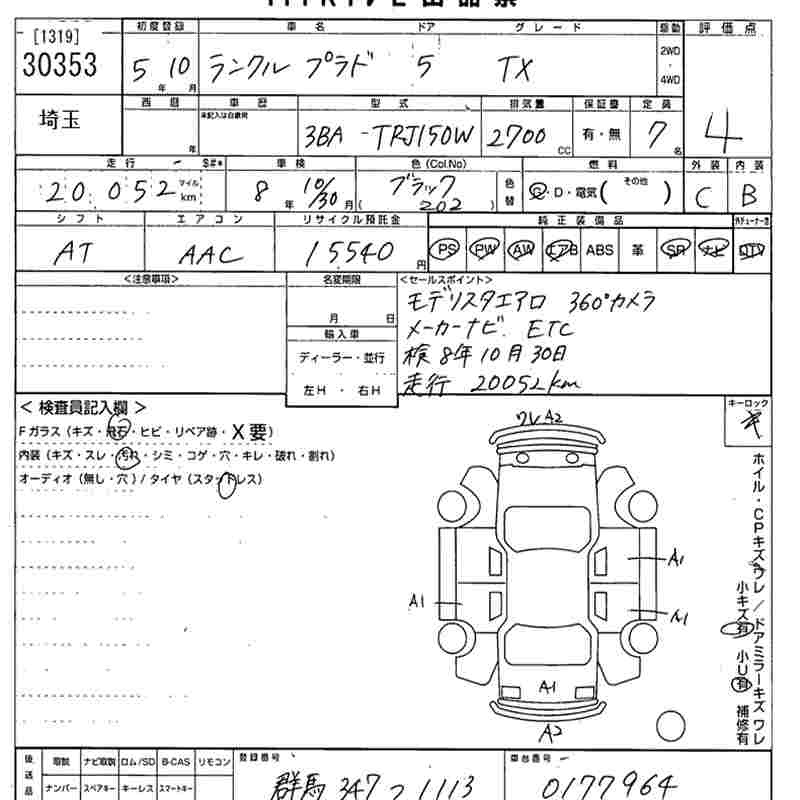 [1319]
30353
初度登録 車名 ドア グレード 駆動 評価点
5年 10月 ランクル プラド 5 TX 2WD・4WD
埼玉
西暦 車歴 型式 排気量 保証書 定員
年 未記入は自家用 3BA-TRJ150W 2700CC 有・無 7名 4
走行 S#* 車検 色(Col.No) 燃料 外装 内装
20,052 マイル km 8年 10/30月 ( ブラック 202 ) 色替 G・D・電気( その他 ) C B
シフト エアコン リサイクル預託金 純正装備品
AT AAC 15540円 PS PW AW エアB ABS 革 SR ナビ DTV
<注意事項> 名変期限 <セールスポイント>
月 日
モデリスタエアロ 360°カメラ
輸入車
メーカーナビ. ETC
ディーラー・並行
検 8年10月30日
左H・右H
走行 20052km
<検査員記入欄> キーロック
Fガラス(キズ・飛石・ヒビ・リペア跡・X要)
内装(キズ・スレ・汚れ・シミ・コゲ・穴・キレ・破れ・割れ)
オーディオ(無し・穴)/タイヤ(スタッドレス)
ワレA2
A1
A1
A1
A1
A2
ホイル・CPキズワレ/ドアミラーキズワレ
小キズ有 小U有 補修有
後送品 取説 ナビ取説 ロム/SD B-CAS リモコン 登録番号 車台番号
ナンバー スペアキー キーレス スマートキー 群馬 347 つ 1113 0177964